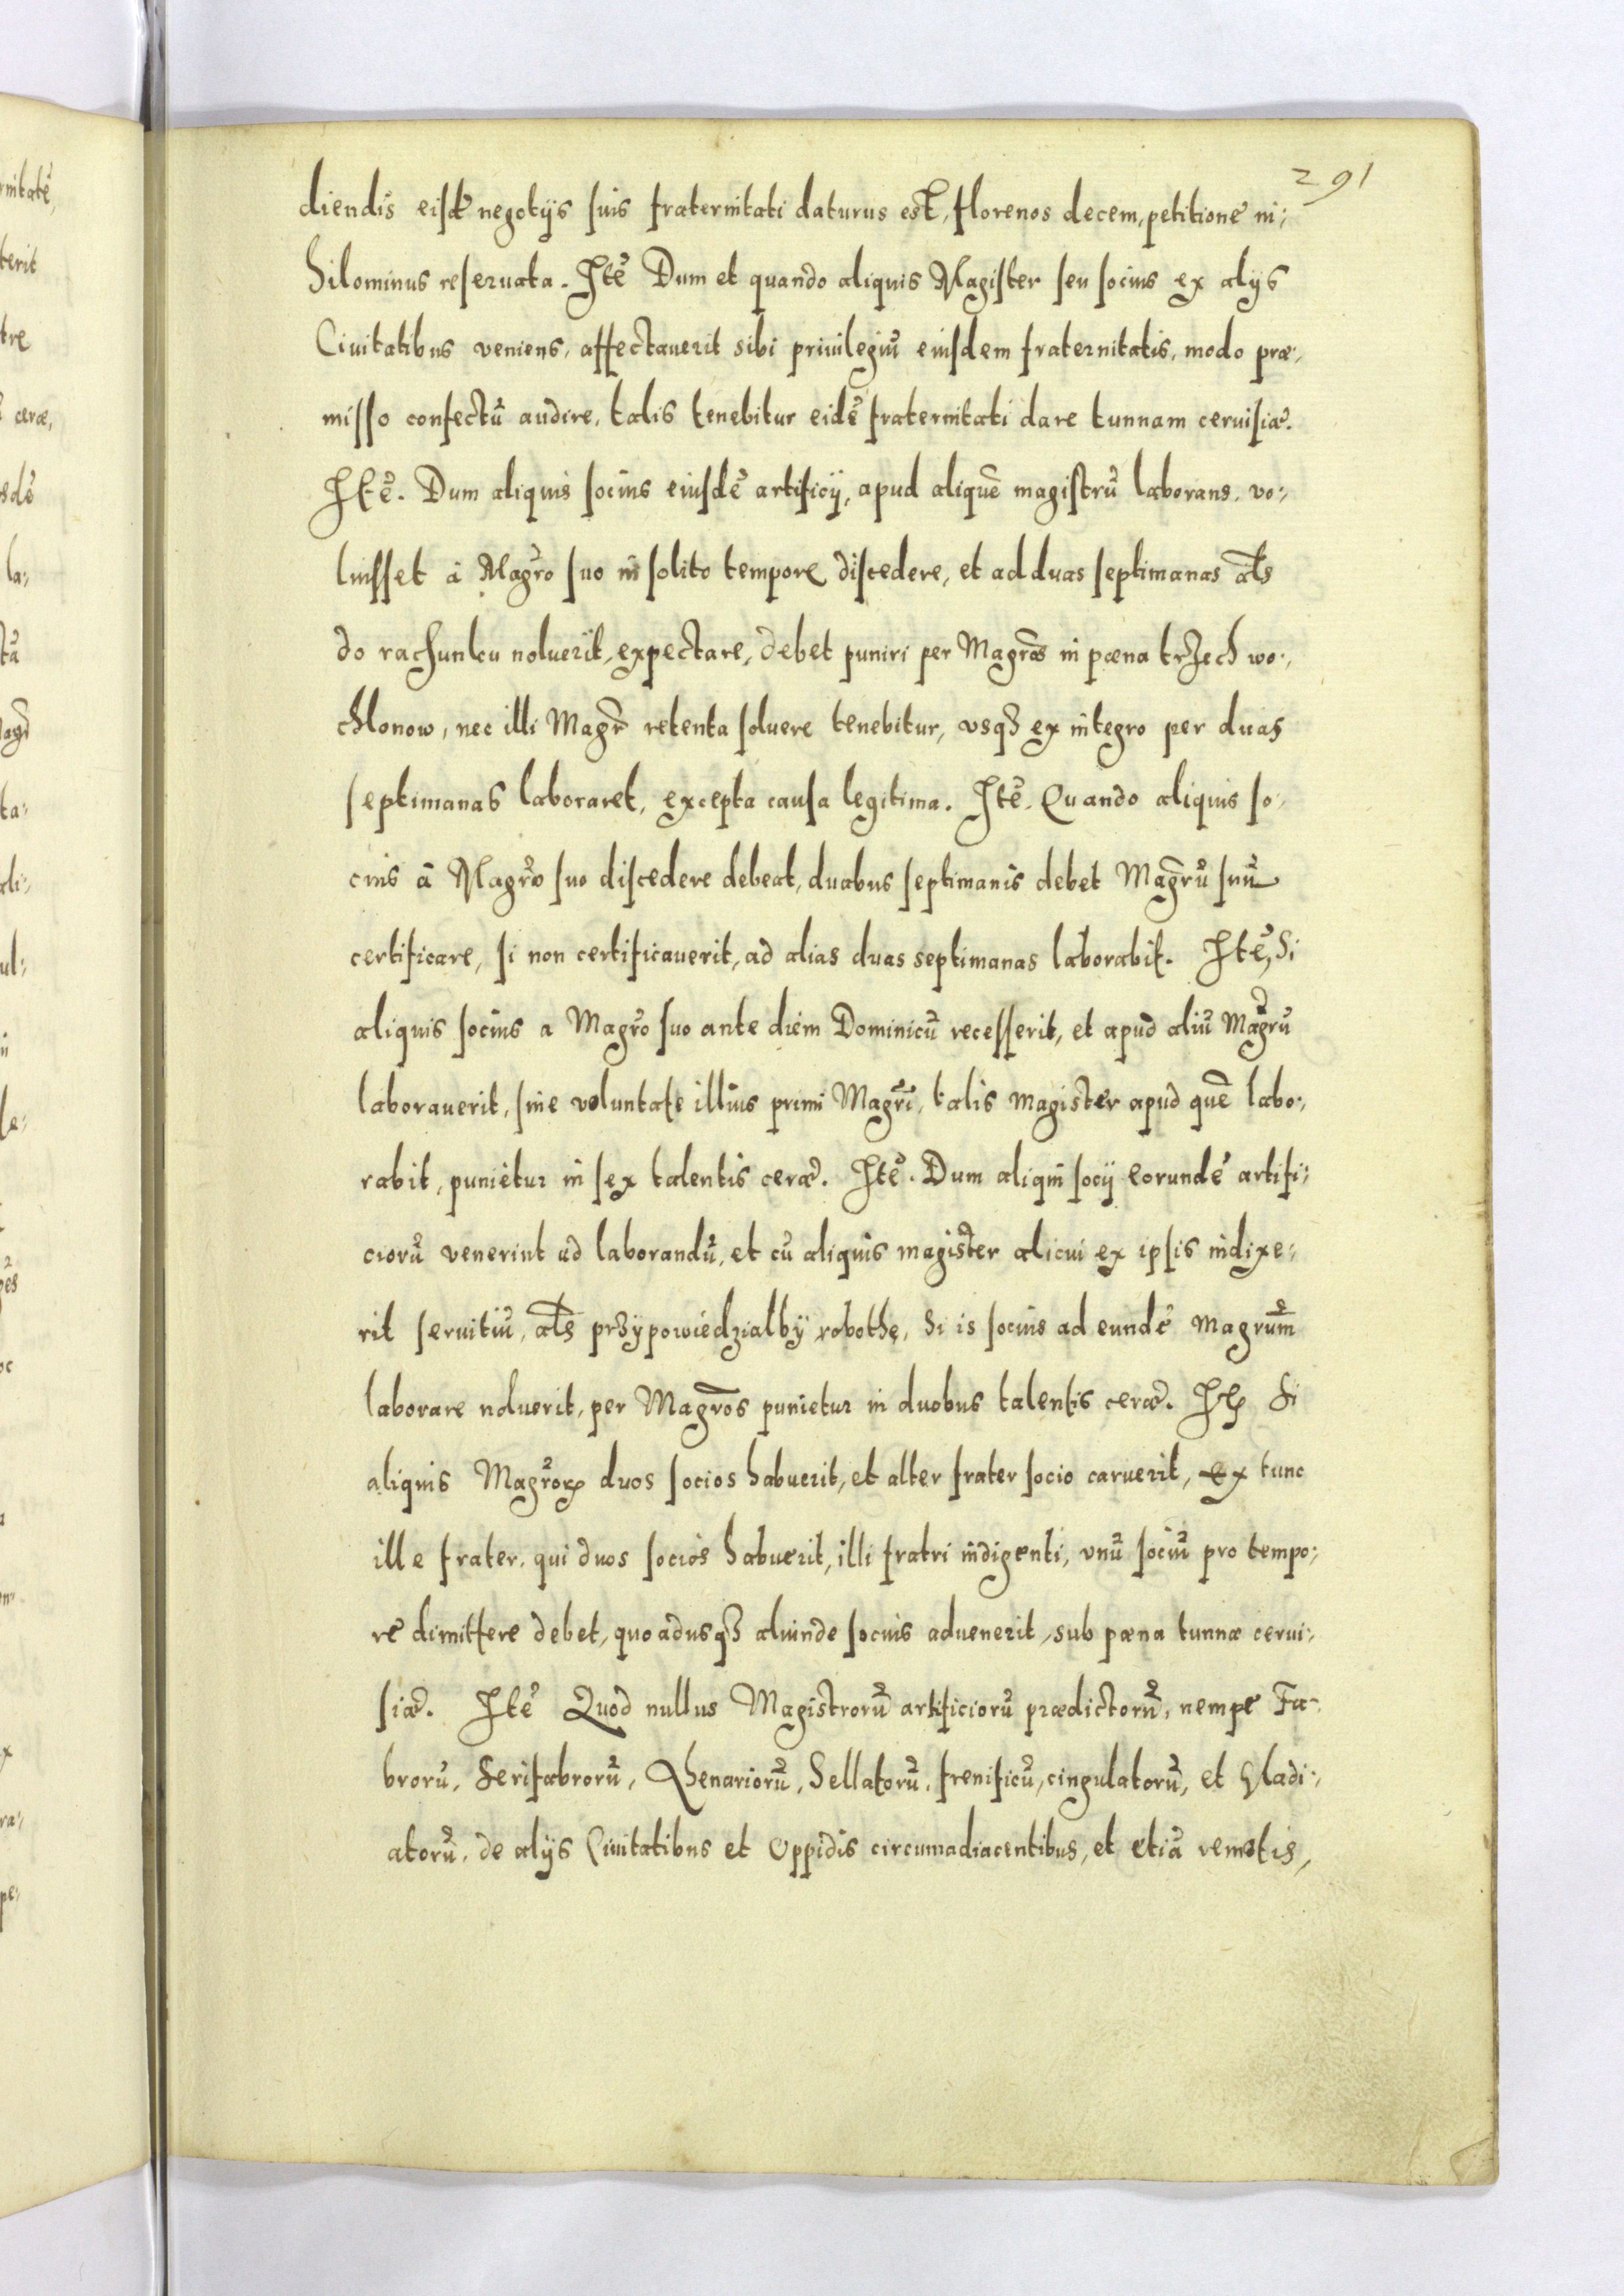 291
diendis eisdẽ negotijs suis fraternitati daturus est, florenos decem, petitione ni:
hilominus reseruata. Itẽ Dum et quando aliquis Magister seu socius ex alijs
Ciuitatibus veniens, affectauerit sibi priuilegiũ eiusdem fraternitatis, modo præ:
misso confectũ audire, talis tenebitur eidẽ fraternitati dare tunnam ceruisiæ.
Itẽ. Dum aliquis socius eiusdẽ artificij, apud aliquẽ magistrũ laborans, vo:
luisset à Magrõ suo insolito tempore discedere, et ad duas septimanas als
do rachunku noluerit, expectare, debet puniri per Magrõs in pœna trzech wo:
chlonow, nec illi Magr̃ retenta soluere tenebitur, vsqꝫ ex integro per duas
septimanas laboraret, excepta causa legitima. Itẽ. Quando aliquis so:
cius à Magrõ suo discedere debeat, duabus septimanis debet Magrũ suũ
certificare, si non certificauerit, ad alias duas septimanas laborabit. Itẽ, Si
aliquis socius a Magrõ suo ante diem Dominicũ recesserit, et apud aliũ Magrũ
laborauerit, sine voluntate illius primi Magrĩ, talis magister apud quẽ labo:
rabit, punietur in sex talentis ceræ. Itẽ. Dum aliqui socij eorundẽ artifi:
ciorũ venerint ad laborandũ, et cũ aliquis magister alicui ex ipsis indixe:
rit seruitiũ, als przypowiedzialby robothę, Si is socius ad eundẽ Magrum̃
laborare noluerit, per Magrõs punietur in duobus talentis ceræ. Itẽ Si
aliquis Magrõꝝ duos socios habuerit, et alter frater socio caruerit, ex tunc
ille frater, qui duos socios habuerit, illi fratri indigenti, vnũ sociũ pro tempo:
re dimittere debet, quoadusqꝫ aliunde socius aduenerit, sub pœna tunnæ cerui:
siæ. Itẽ Quod nullus Magistrorũ artificiorũ prædictorũ, nempe Fa:
brorũ, Serifabrorũ, Ahenariorũ, Sellatorũ, frenificũ, cingulatorũ, et Gladi:
atorũ, de alijs Ciuitatibus et Oppidis circumadiacentibus, et etiã remotis,